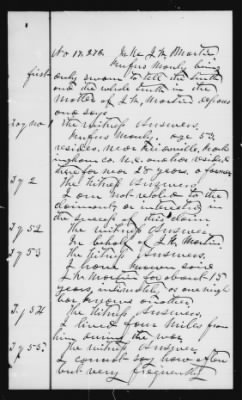 No 17.276. In Re J. H. Martin
Rufus Manly being
first
duly sworn to tell the truth
and the whole truth in the
Matter of J. H. Martin deposes
and says
The Witness Answers,
Rufus Manly. age 52
resides, near Reidsville, Rock
ingham Co. N.C. and has resided
there for near 28 years. a farmer
The Witness Answers,
I am not related to the
claimant, or interested in
the success of this claim
The witness Answers
In behalf of J. H. Martin
The Witness Answers,
I have known said
J. H. Martin for about 15
years, intimately, as one neigh
bor knows another
The Witness Answers,
I lived four miles from
him during the war
The Witness Answers
I cannot say how often
but very frequently